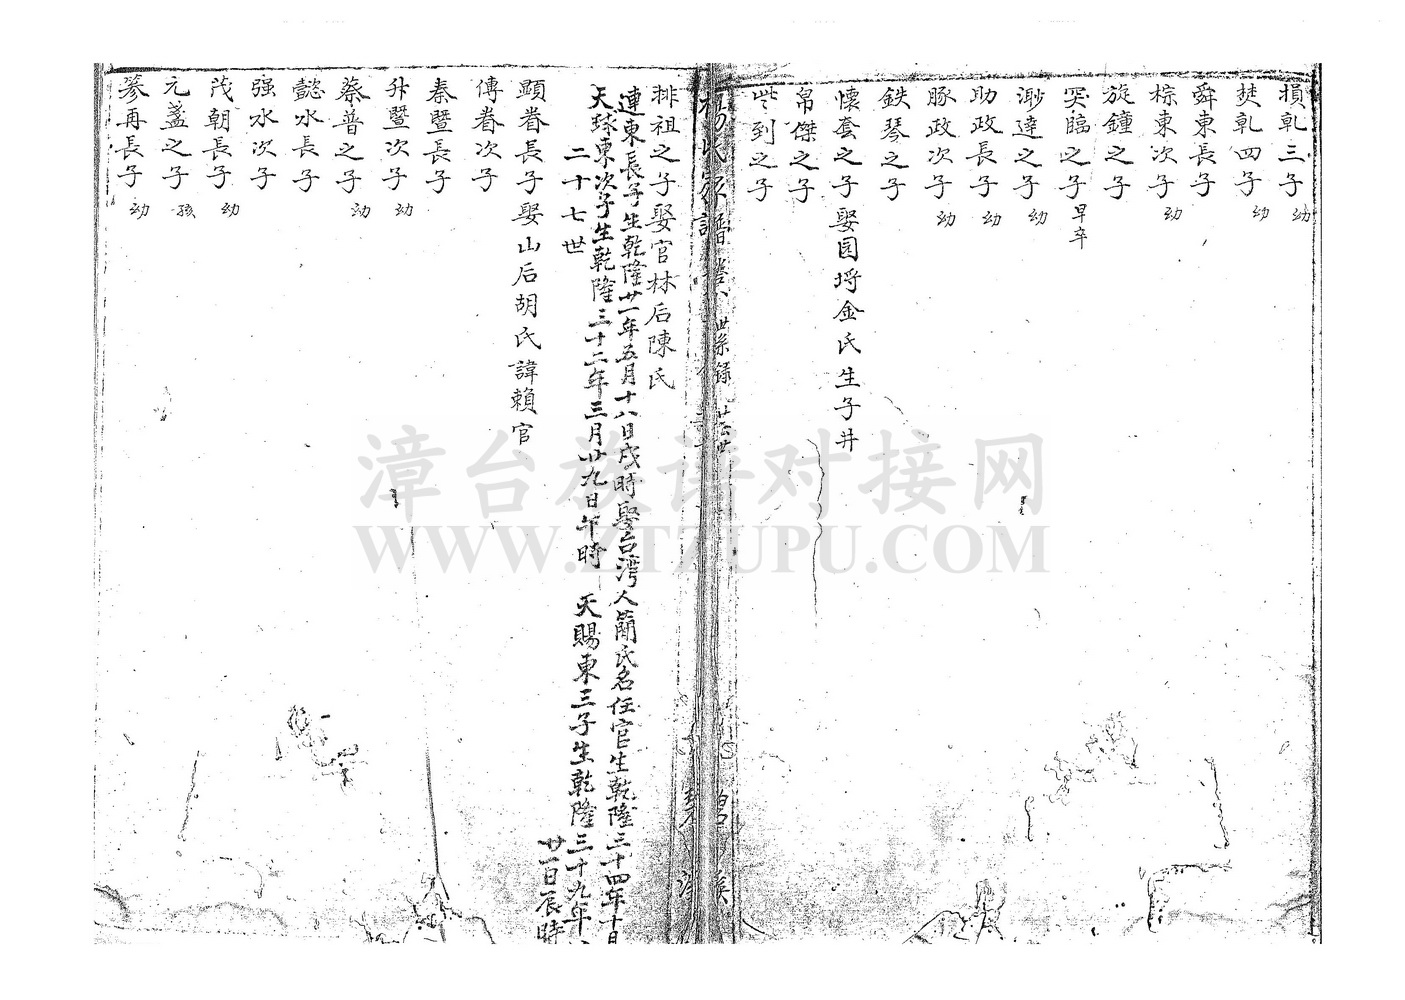 損乹三子 幼
㷊乹四子 幼
舜東長子
棕東次子 幼
旋鐘之子
突臨之子 早卒
渺達之子 幼
助政長子 幼
豚政次子 幼
鉄琴之子
懷套之子娶园埓金氏生子井
帛傑之子
到之子
楊氏家譜 世系錄
排祖之子娶官林后陳氏
連東長子生乾隆廿一年五月十八日戌時娶台湾人簡氏名任官生乾隆三十四年十月
天球東次子生乾隆三十二年三月廿九日午時 天賜東三子生乾隆三十九年
廿一日辰時
二十七世
顕眷長子娶山后胡氏諱賴官
傳眷次子
秦暨長子
升暨次子 幼
蔡普之子 幼
懿水長子
强水次子
茂朝長子 幼
元盞之子 孩
箏再長子 幼
漳台族谱对接网
WWW.ZTZUPU.COM